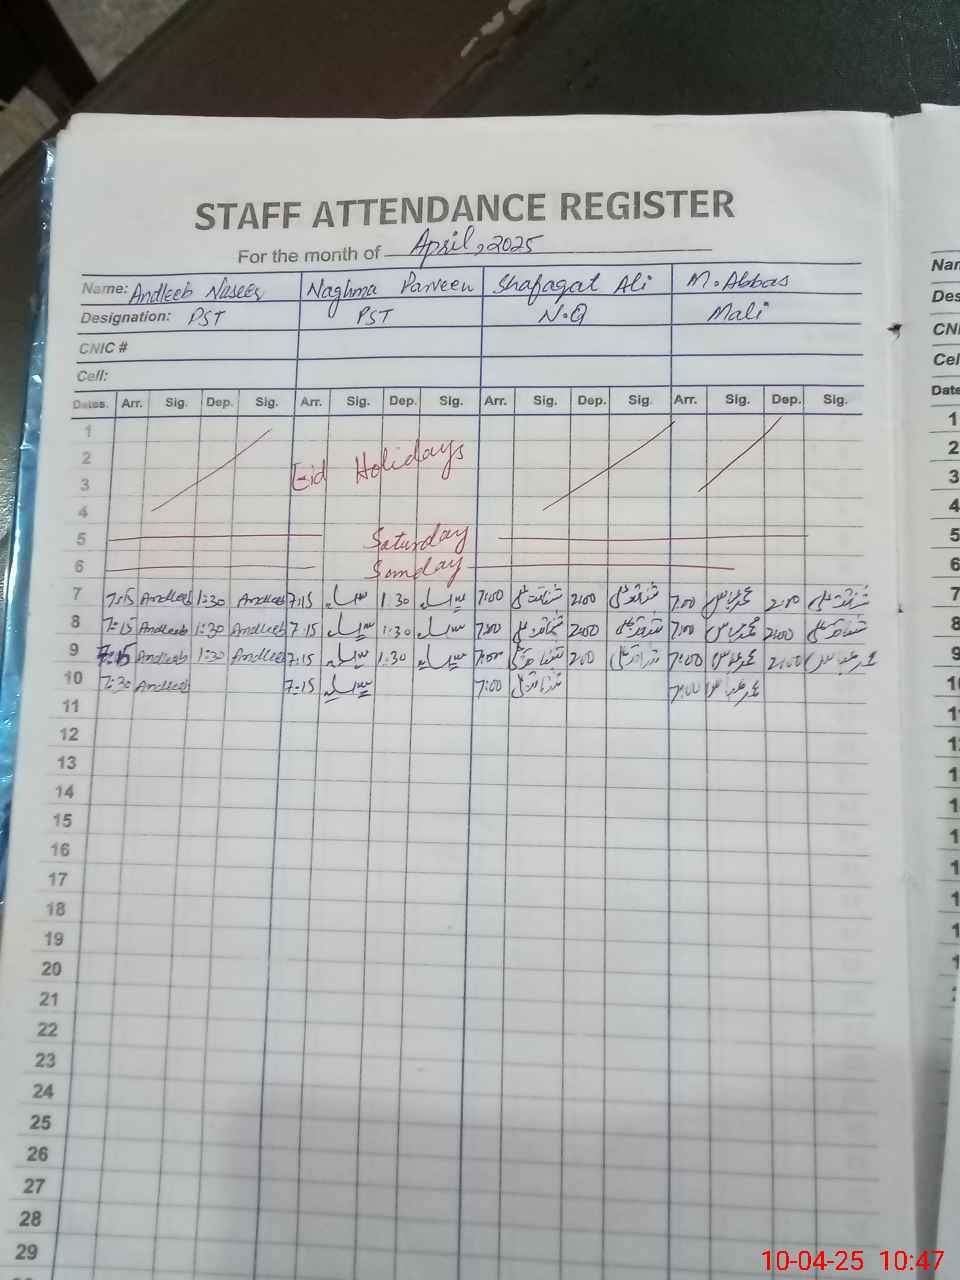 STAFF ATTENDANCE REGISTER
For the month of April, 2025
Name: Andleeb Naseer Naghma Parveen Shafaqat Ali M. Abbas
Designation: PST PST N.Q Mali
CNIC #
Cell:
Dates. Arr. Sig. Dep. Sig. Arr. Sig. Dep. Sig. Arr. Sig. Dep. Sig. Arr. Sig. Dep. Sig.
1
2 Eid Holidays
3
4
5 Saturday
6 Sunday
7 7:15 Andleeb 1:30 Andleeb 7:15 1:30 7:00 2:00 7:00 2:00
8 7:15 Andleeb 1:30 Andleeb 7:15 1:30 7:00 2:00 7:00 2:00
9 7:15 Andleeb 1:30 Andleeb 7:15 1:30 7:00 2:00 7:00 2:00
10 7:30 Andleeb 7:15 7:00 7:00
11
12
13
14
15
16
17
18
19
20
21
22
23
24
25
26
27
28
29
Date
1
2
3
4
5
6
7
8
9
10-04-25 10:47